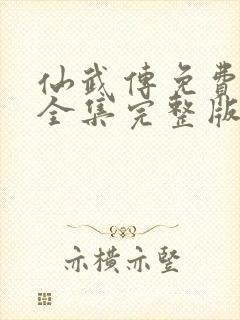 仙武傳免費
全集完整版
亦橫亦豎